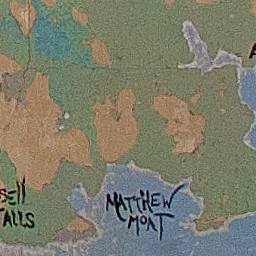 sell
Falls
MATTHEW
MOAT